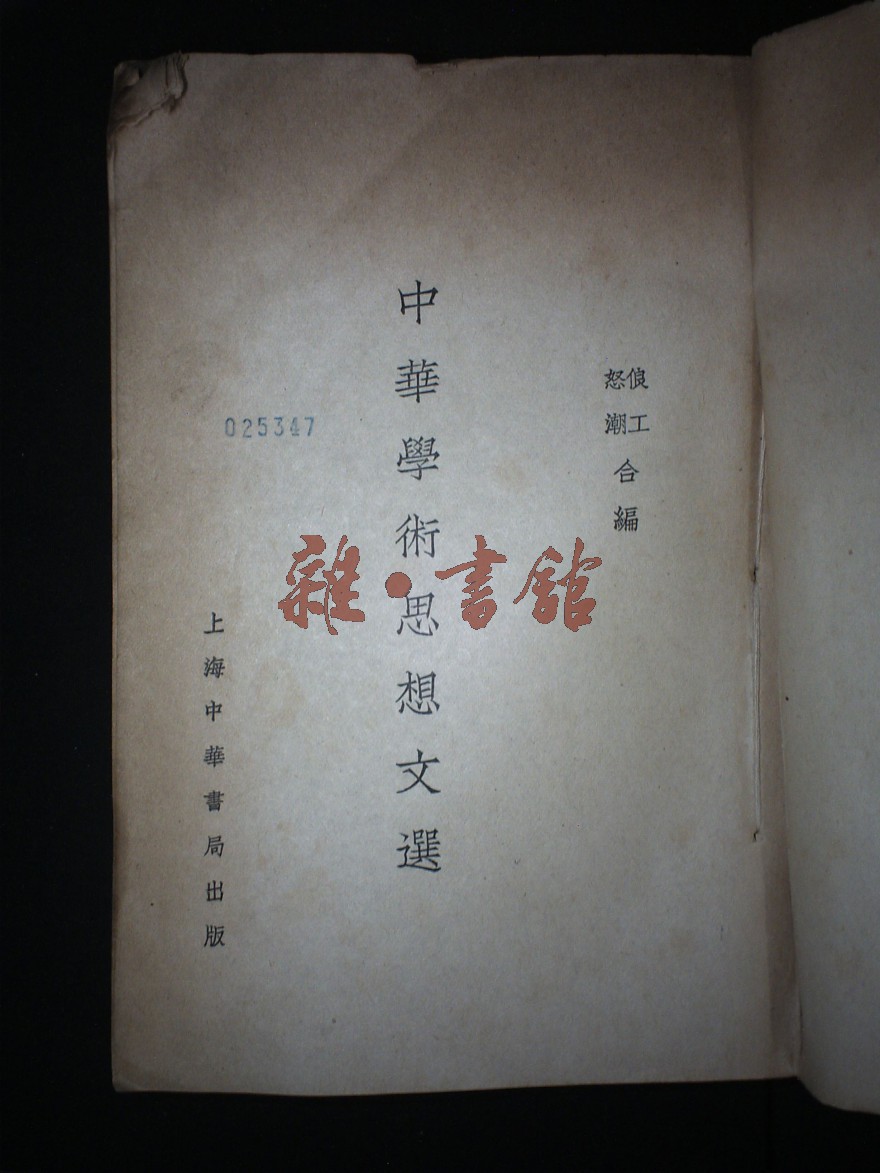 俍工
怒潮
合編
中華學術思想文選
025347
上海中華書局出版
雜·書館